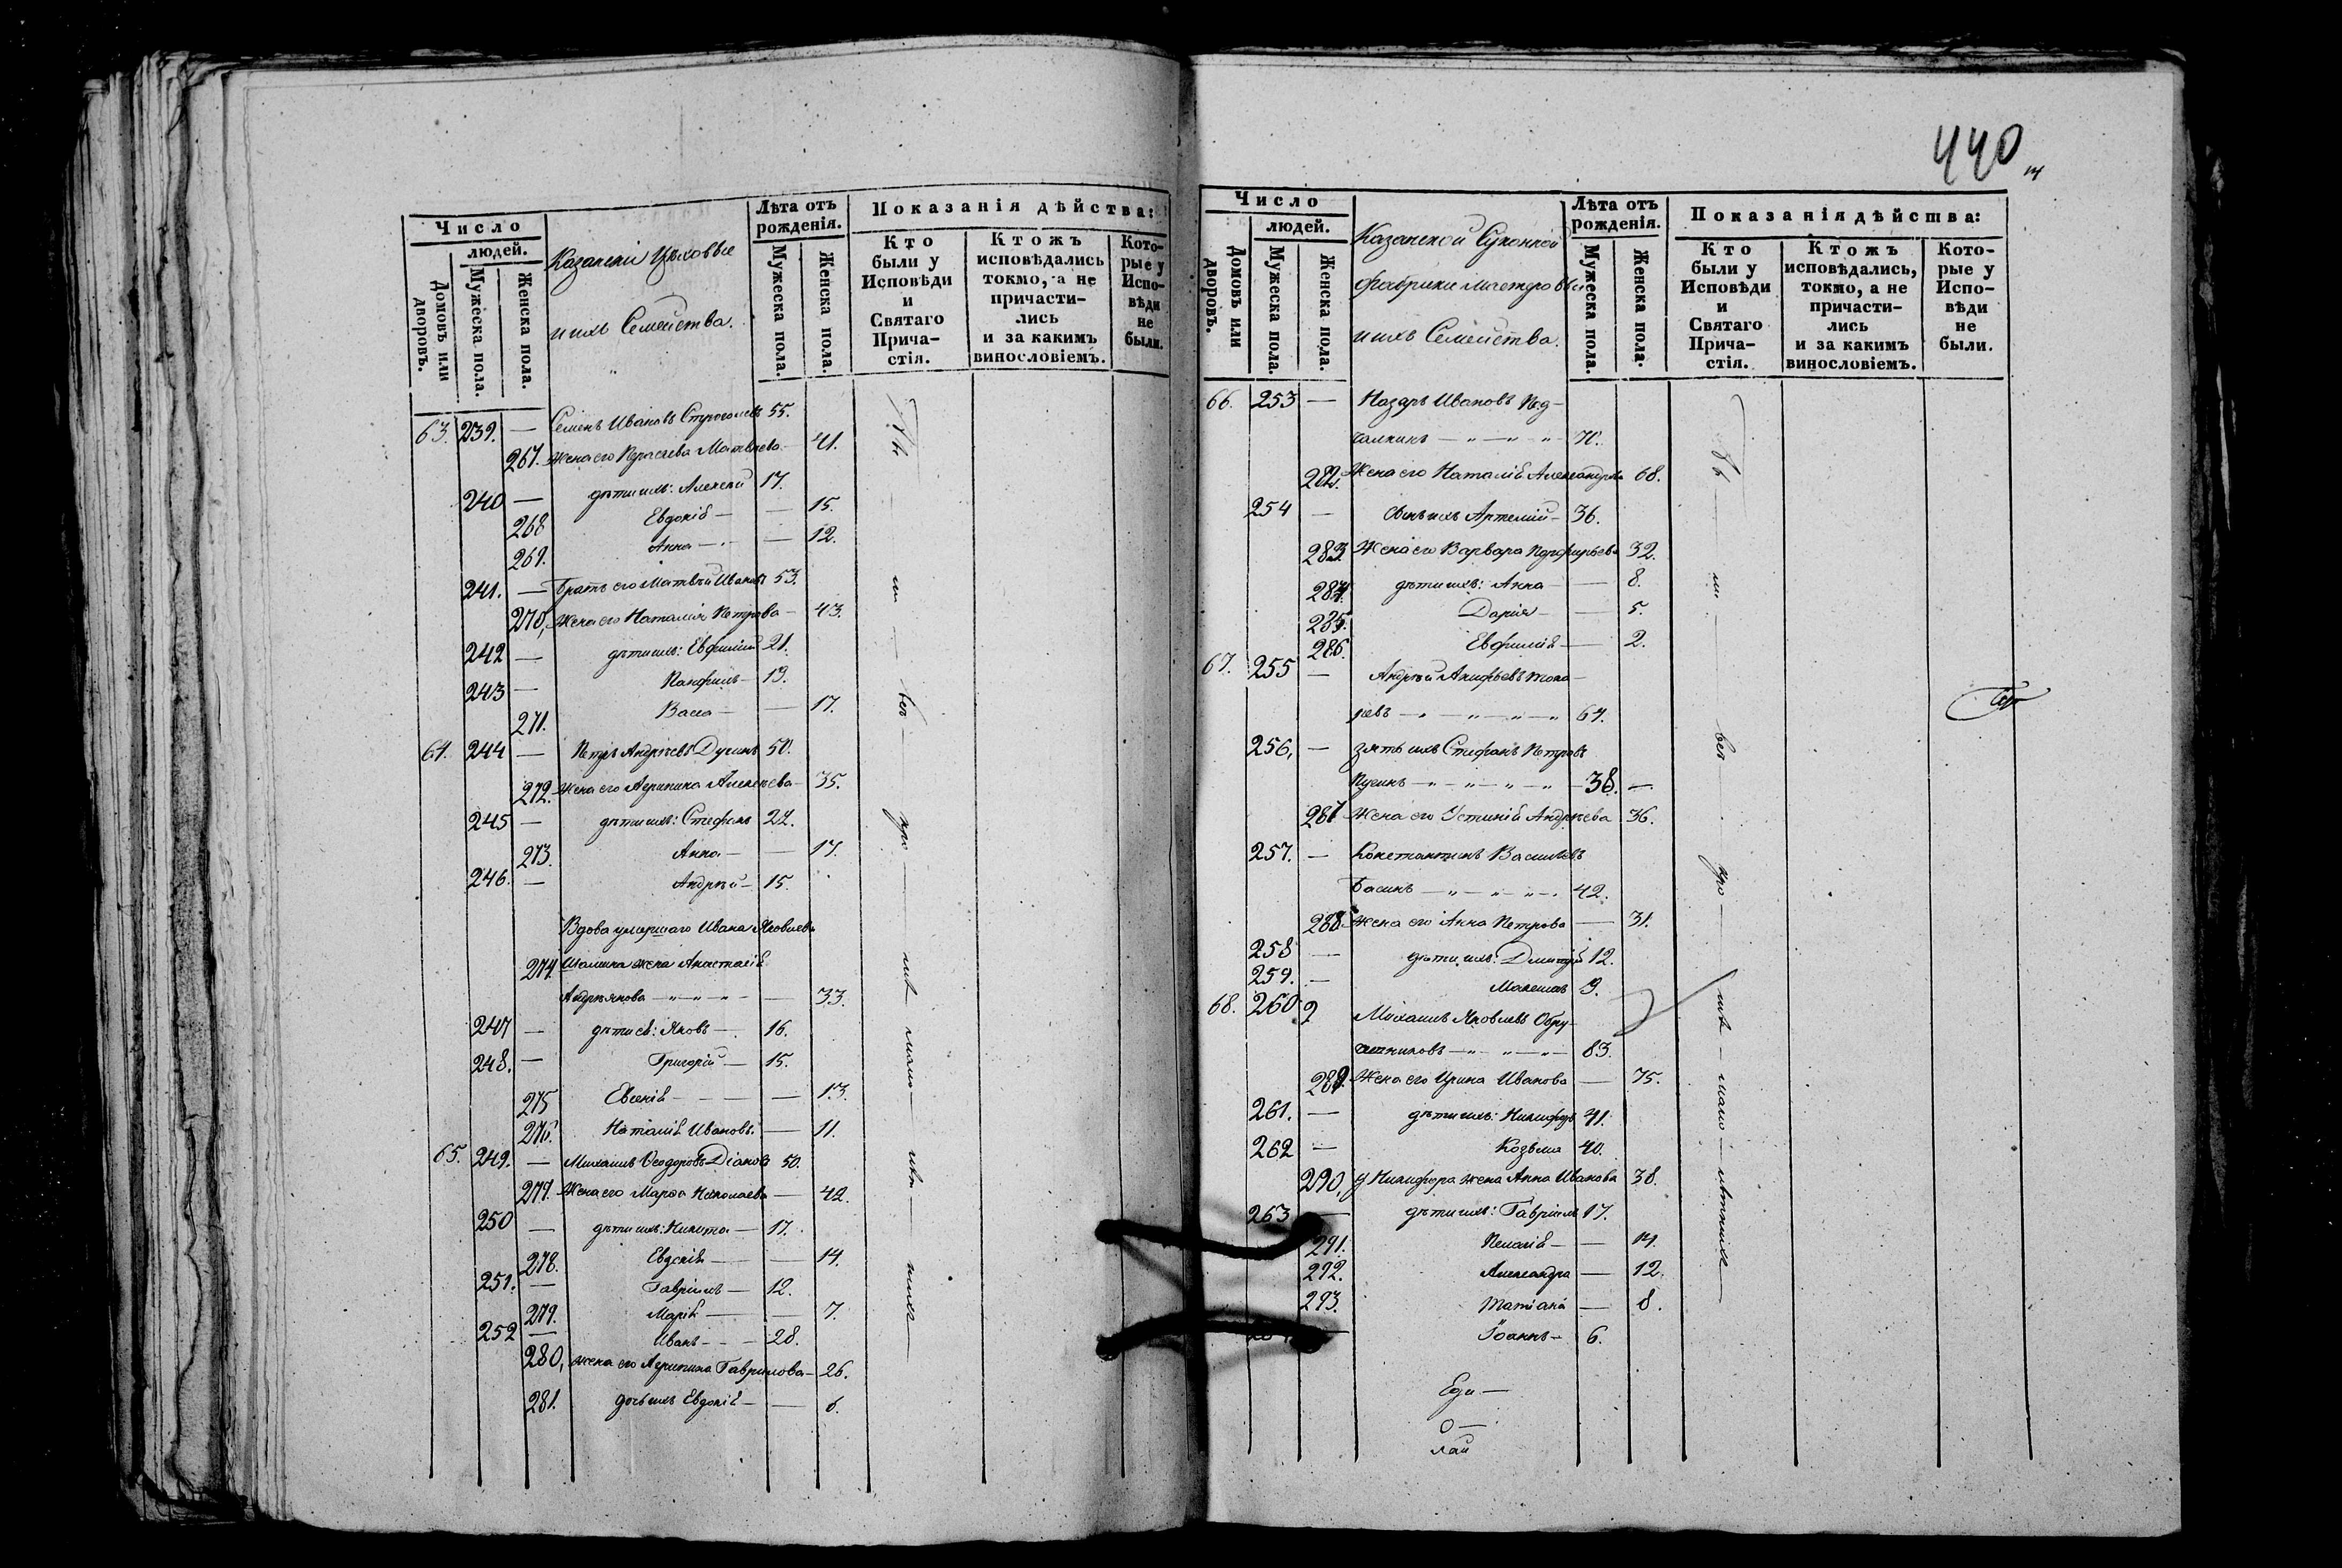 440
Число
людей.
Домовъ или дворовъ.
Мужеска пола.
Женска пола.
Казанскіи Цѣховые
и ихъ Семейства.
Лѣта отъ рожденія.
Мужеска пола.
Женска пола.
Показанія дѣйства:
Кто были у Исповѣди и Святаго Прича-стія.
Ктожъ исповѣдались токмо, а не причасти-лись и за какимъ винословіемъ.
Кото-рые у Испо-вѣди не были.
63. 239. — Семенъ Ивановъ 55.
267. жена его Матвѣева — 41.
240 — дѣти ихъ: Алексей 17.
268 Евдокія — — 15.
269. Анна — — 12.
241. — Братъ его Матвѣй Ивановъ 53.
270, жена его Наталия Петрова — 43.
242 — дѣти ихъ: Евфимій 21.
243 — Панфилъ — 13.
271. Васса — — 17.
64. 244 — Петръ Андрѣевъ 50.
272. жена его Агрипина Алексѣева — 35.
245 — дѣти ихъ: Стефанъ 22.
273. Анна — — 17.
246. — Андрѣй — 15.
Вдова умершаго Ивана Яковлева
274. жена Анастасія
Андреянова — — 33.
247 — дѣти ея: Яковъ — 16.
248. — Григорій — 15.
275 Евгенія — — 13.
276. Наталія Ивановы — 11.
65. 249. — Михаилъ Ѳеодоровъ Діановъ 50.
277. жена его Марѳа Николаева — 42.
250 — дѣти ихъ: Никита — 17.
278. Евдокія — — 14.
251. — Гавріилъ — 12.
279. Марія — 7.
252 — Иванъ — 28.
280, жена его Агрипина Гаврилова — 26.
281. дочь ихъ Евдокія — — 6.
Число
людей.
Домовъ или дворовъ.
Мужеска пола.
Женска пола.
Казанской Суконной
фабрики мастеровые
и ихъ Семейства.
Лѣта отъ рожденія.
Мужеска пола.
Женска пола.
Показанія дѣйства:
Кто были у Исповѣди и Святаго Прича-стія.
Ктожъ исповѣдались, токмо, а не причасти-лись и за какимъ винословіемъ.
Кото-рые у Испо-вѣди не были.
66. 253 — Назаръ Ивановъ
— 70.
282. Жена его Наталія Александрова 68.
254 — Сынъ ихъ Артемий — 36.
283. Жена его Варвара Порфирьева 32.
284. дѣти ихъ: Анна — 8.
285. Дарія — — 5.
286. Евфимія — 2.
67. 255 — Андрей Токо-
ревъ — 64.
256, — зять ихъ Стефанъ Петровъ
— 38. —
287 Жена его Устинія Андрѣева 36.
257. — Константинъ Васильевъ
Басинъ — 42.
288. жена его Анна Петрова — 31.
258 — дѣти ихъ: Дмитрій 12.
259. — Максимъ 9.
68. 260 Михаилъ Яковлевъ Обру-
чниковъ — 83.
289. Жена его Ирина Иванова — 75.
261. — дѣти ихъ: Никифоръ 41.
262 — Козьма 40.
290, у Никифора жена Анна Иванова 38.
263 — дѣти ихъ: Гавріилъ 17.
291. Пелагія — — 14.
292. Александра — 12.
293. Татіана — 8.
Іоаннъ — 6.